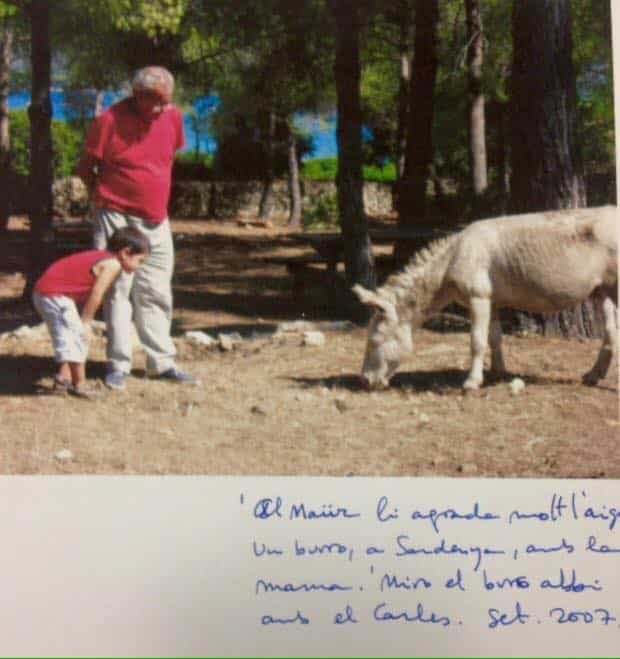 'Al Maür li agrada molt l'aig
Un burro, a Sardenya, amb la
mama.' Miro el burro albí
amb el Carles. Set. 2007.